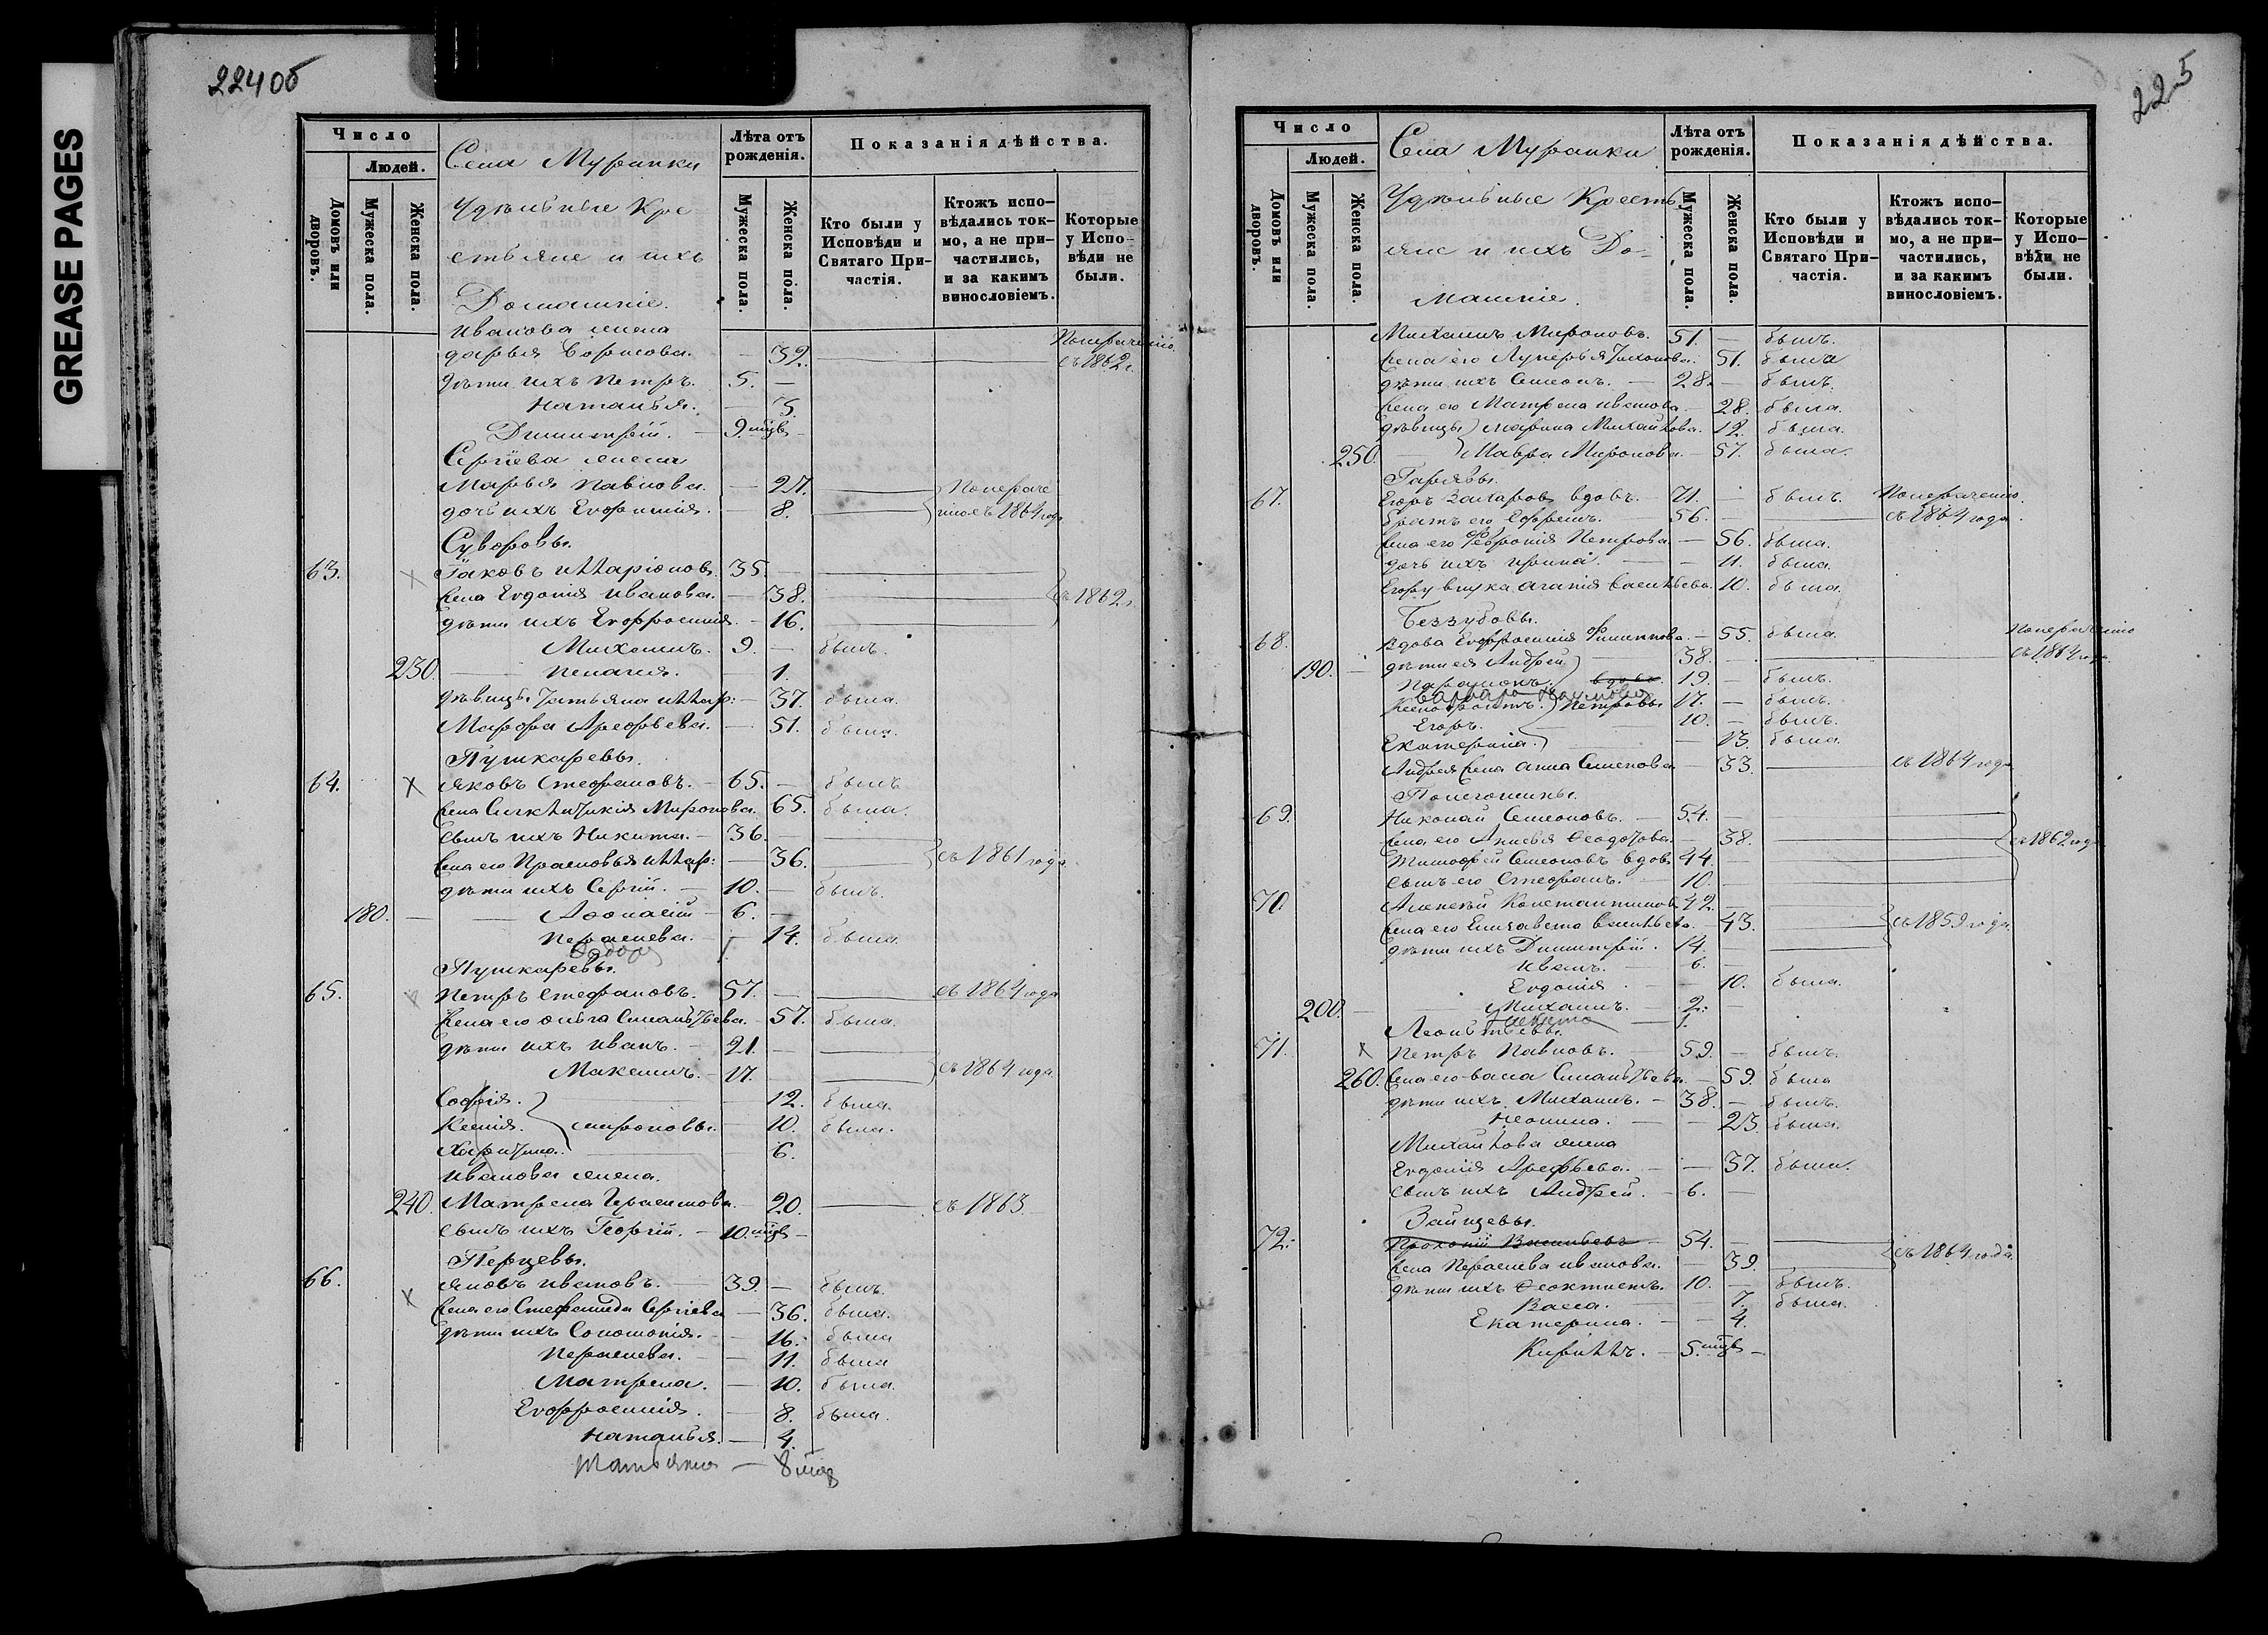 GREASE PAGES
224 об
Число
Людей.
Домовъ или дворовъ.
Мужеска пола.
Женска пола.
Села Муранки
Удѣльные Кре
стьяне и ихъ
Домашніе.
Лѣта отъ рожденія.
Мужеска пола.
Женска пола.
Показанія дѣйства.
Кто были у Исповѣди и Святаго Причастія.
Ктожъ исповѣдались токмо, а не причастились, и за какимъ винословіемъ.
Которые у Исповѣди не были.
Иванова жена
Дарья Борисова. — 39. По нераченію съ 1862 г.
дѣти ихъ Петръ. 5. —
Наталья. — 5.
Димитрій. — 9. мцв —
Сергіева жена
Марья Павлова. — 27. По нераче
дочь ихъ Евфимія. — 8. нію съ 1864 года
Суворовы.
63. Іаковъ Илларіоновъ. 35. —
жена Евдокія Иванова. — 38. съ 1862 г.
дѣти ихъ Евфросинія. — 16.
Михаилъ. 9. — былъ.
230. Пелагія. — 1.
дѣвицы Татьяна Иллар: — 37. была.
Марфа Арефьева. — 51. была.
Пушкаревы.
64. Яковъ Стефановъ. — 65. — былъ
жена Синклитикія Миронова. 65. была.
сынъ ихъ Никита. — 36. —
жена его Прасковья Иллар: — 36. съ 1861 года
дѣти ихъ Сергій. — 10. — былъ.
180. — Аѳонасій — 6. —
Параскева. — 14. была.
Пушкаревы.
65. Петръ Стефановъ. 57. — съ 1864 года
жена его Ольга Силантьева. — 57. была.
дѣти ихъ Иванъ. — 21. —
Максимъ. — 17. съ 1864 года
Софія. 12. была.
Ксенія. Мироновы. — 10. была.
Харитина. 6.
Иванова жена.
240. Матрена Герасимова. — 20. съ 1863
сынъ ихъ Георгій. — 10. мцв —
Перцевы.
66. Яковъ Ивановъ. — 39. — былъ.
жена его Стефанида Сергіева — 36. была.
дѣти ихъ Соломонія. — 16. была
Параскева. — 11. была
Матрена. — 10. была.
Евфросинія. — 8. была.
Наталья. — 4.
Татьяна — 8 мцв
225
Число
Людей.
Домовъ или дворовъ.
Мужеска пола.
Женска пола.
Села Муранки
Удѣльные Кресть
яне и ихъ До-
машніе.
Лѣта отъ рожденія.
Мужеска пола.
Женска пола.
Показанія дѣйства.
Кто были у Исповѣди и Святаго Причастія.
Ктожъ исповѣдались токмо, а не причастились, и за какимъ винословіемъ.
Которые у Исповѣди не были.
Михаилъ Мироновъ. 51. — былъ.
жена его Лукерья Тихонова. 51. была
дѣти ихъ Симеонъ. — 28. — былъ.
жена его Матрена Иванова — 28. была.
дѣвицы Марина Михайлова. 12. была.
250. Мавра Миронова. — 57. была.
Гаряевы.
67. Егоръ Захаровъ вдовъ. — 71. — былъ. По нераченію
братъ его Ефремъ. 56. — съ 1864 года.
жена его Февронія Петрова. — 56. была.
дочь ихъ Ирина. — 11. была.
Егору внука Агапія Васильева. 10. была.
Беззубовы.
68. Вдова Евфросинія Филиппова. — 55. была. По нераченію
190. — дѣти ея Андрей 38. — съ 1864 года.
Парамонъ. 19. — былъ.
Ксенофонтъ. Петровы 17. — былъ.
Егоръ. 10. — былъ.
Екатерина. — 13. была.
Андрея жена Анна Семенова — 33. съ 1864 года
69. Николай Семеновъ. — 54. —
жена его Анисья Ѳеодорова. 38. съ 1862 года
Тимофей Семеновъ вдовъ 44. —
сынъ его Стефанъ. 10. —
70. Алексѣй Константиновъ 42. —
жена его Елизавета Васильева. — 43. съ 1859 года
дѣти ихъ Димитрій. 14. —
Иванъ. — 6. —
Евдокія — 10. была.
200. — Михаилъ. — 2.
Леонтьевы.
71. Петръ Павловъ. — 59. — былъ.
260. жена его Васса Силантьева. — 59. была
дѣти ихъ Михаилъ. — 38. — былъ.
Неонила. — 23. была.
Михайлова жена
Евдокія Арефьева. — 37. была.
сынъ ихъ Андрей. — 6. —
Зайцевы.
72. Прокопій Васильевъ — 54. —
жена Параскева Иванова. — 39. съ 1864 года.
дѣти ихъ Ѳеоктистъ. 10. — былъ.
Васса. — 7. была.
Екатерина. — 4.
Кириллъ. — 5. мцв —